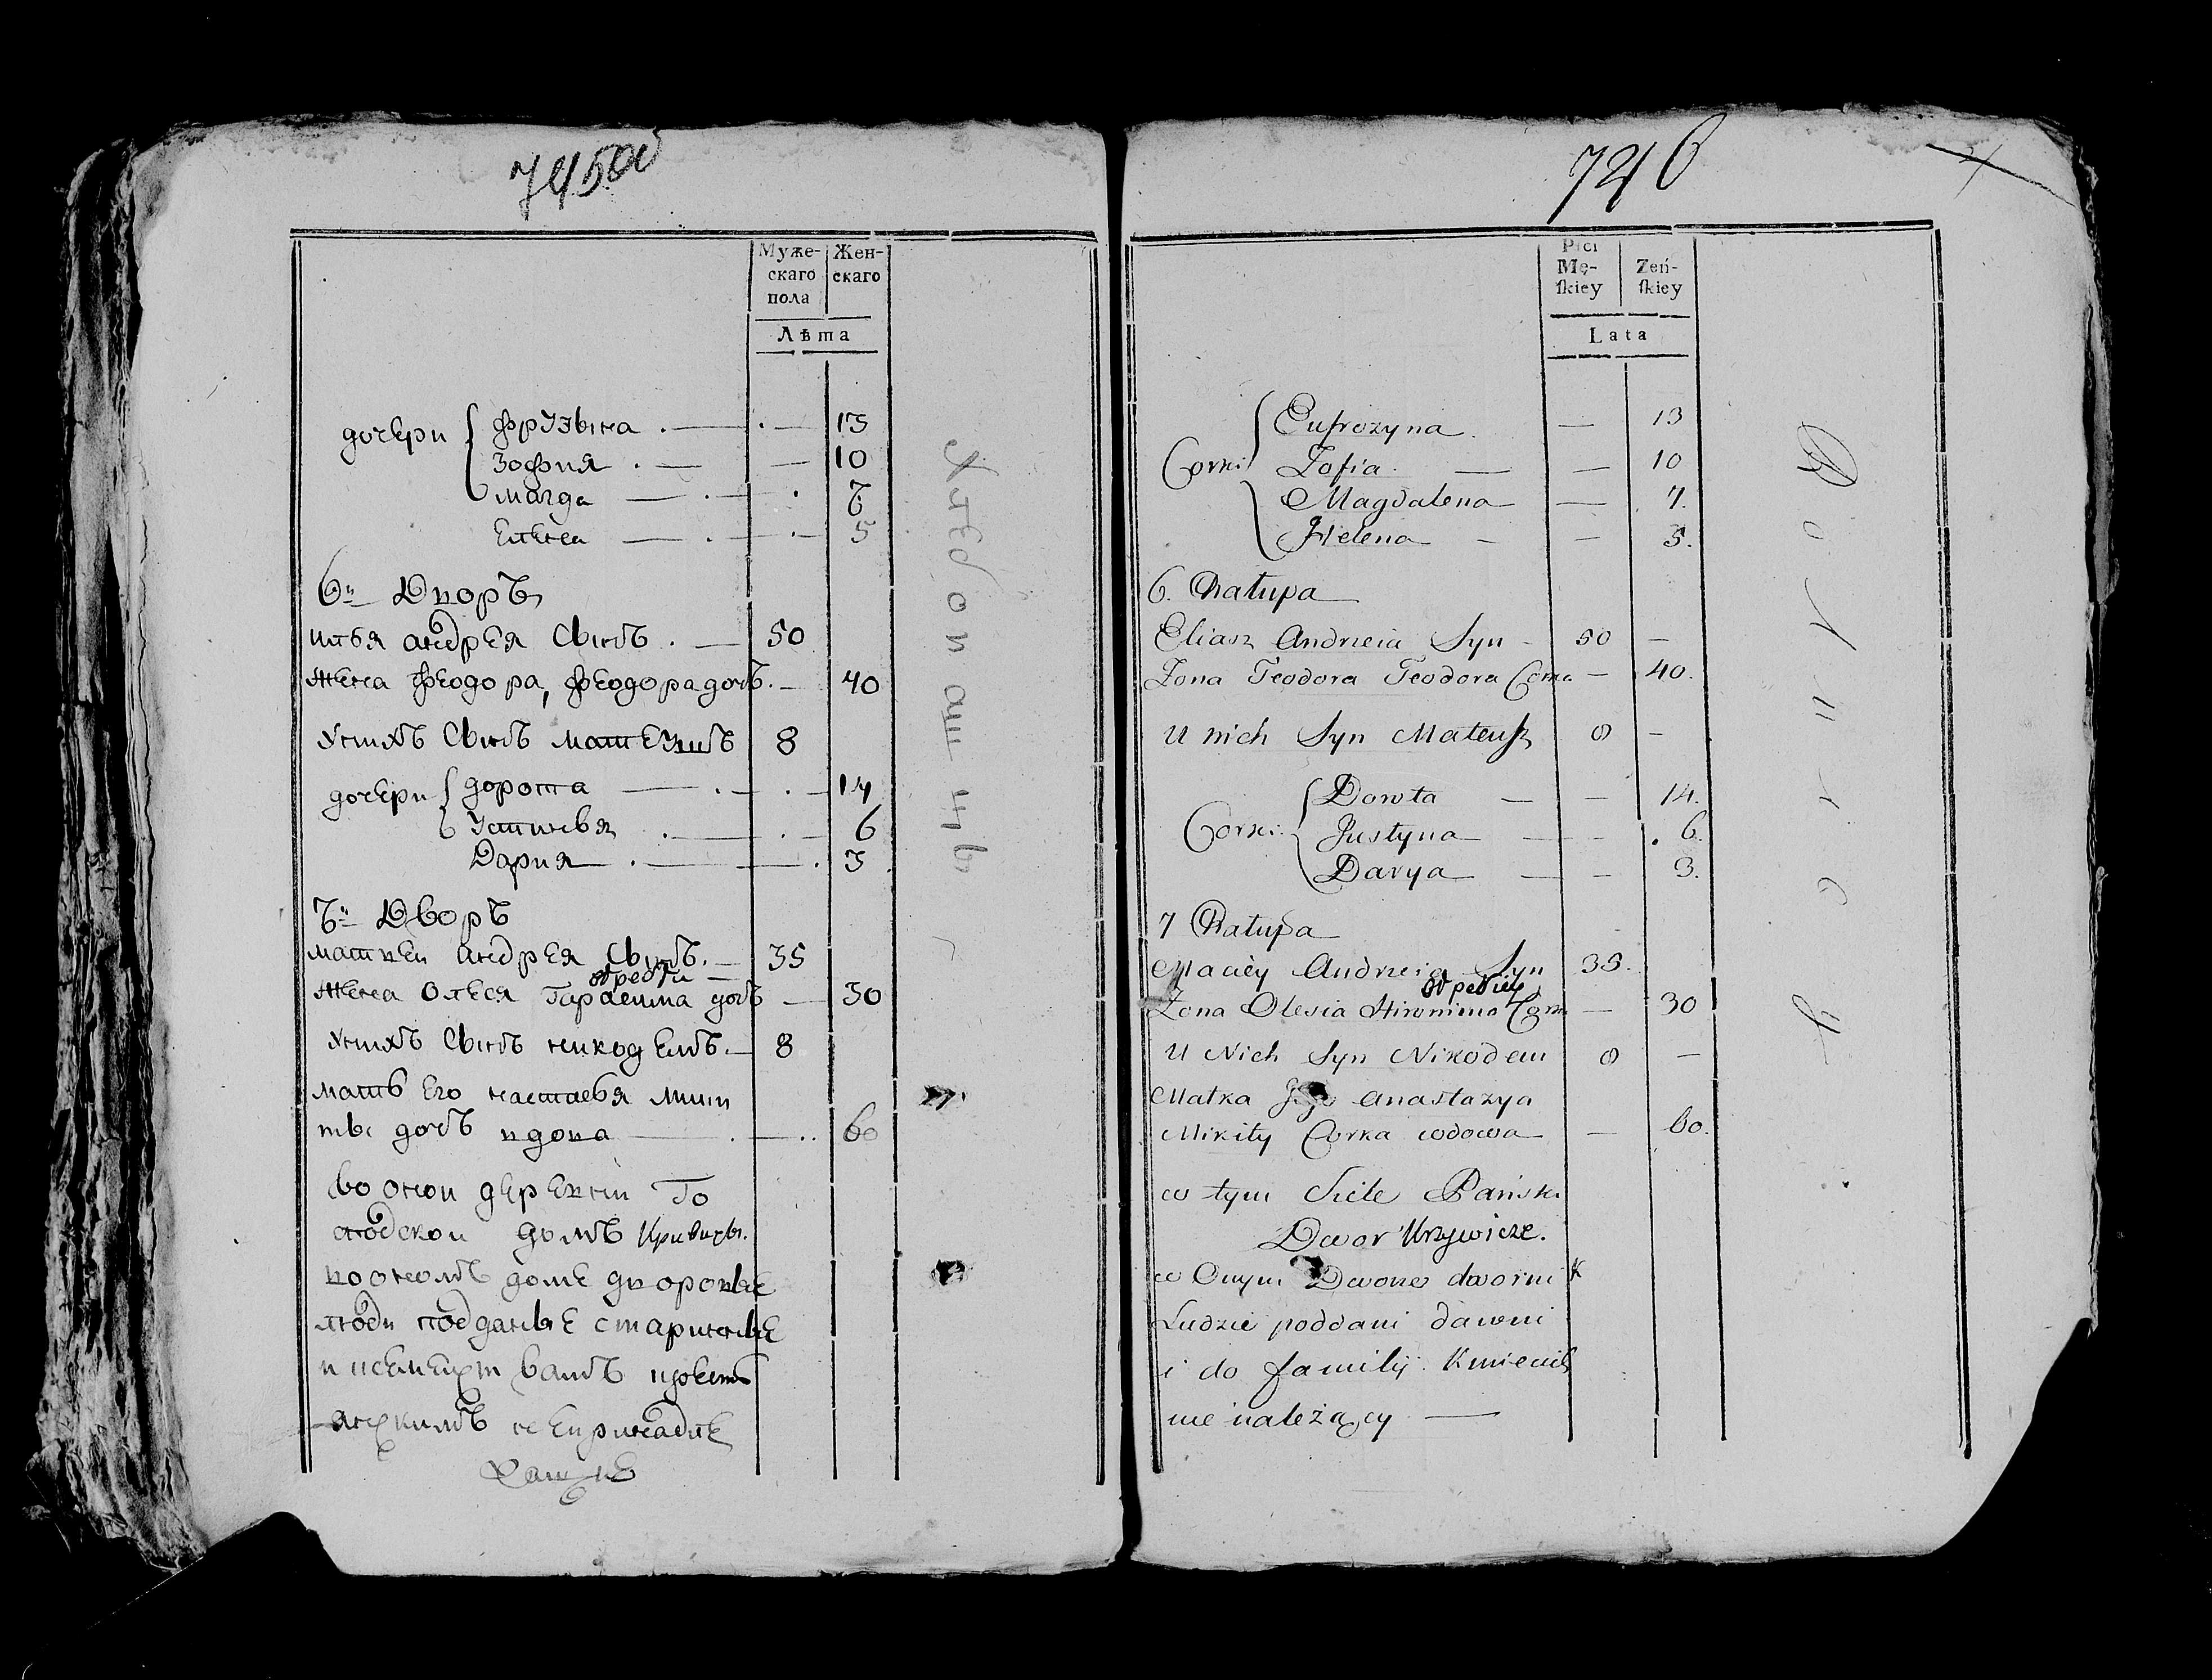 745об
Муже-
скаго
пола
Жен-
скаго
Лѣта
дочери
фрузына 13
Зофия 10
магда 7
Елена 5
6й Дворъ
илья андрея сынъ 50
жена феодора, феодора дочь 40
Унихъ сынъ матеушъ 8
дочери
дорота 14
Устинья 6
Дария 3
7й Дворъ
матвеи андрея сынъ 35
жена олеся Гарасима дочь 30
Унихъ сынъ никодемъ 8
мать его настасья мики
ты дочь вдова 60
Во онои деревни Го
сподскои домъ Кривичи.
во ономъ доме дворовые
люди подданые старинные
Хлебопашцы
746
Płci
Mę-
ſkiey
Zeń-
ſkiey
Lata
Corki
Eufrozyna 13
Zofia 10
Magdalena 7.
Helena 5.
6. Chałupa
Eliasz Andrzeia Syn 50
Zona Teodora Teodora Corka 40.
U nich Syn Mateusz 8
Corki
Dorota 14.
Justyna 6.
Darya 3.
7 Chałupa
Maciey Andrzeia Syn 35.
Zona Olesia Hironima Corka 30
U Nich Syn Nikodem 8
Matka Jego Anastazya
Mikity Corka wdowa 60.
w tym Siele Pański
Dwor Krzywicze.
w Onym Dworze dworni
Ludzie poddani dawni
i do familij Kmiecich
nie należący
Rolnicy